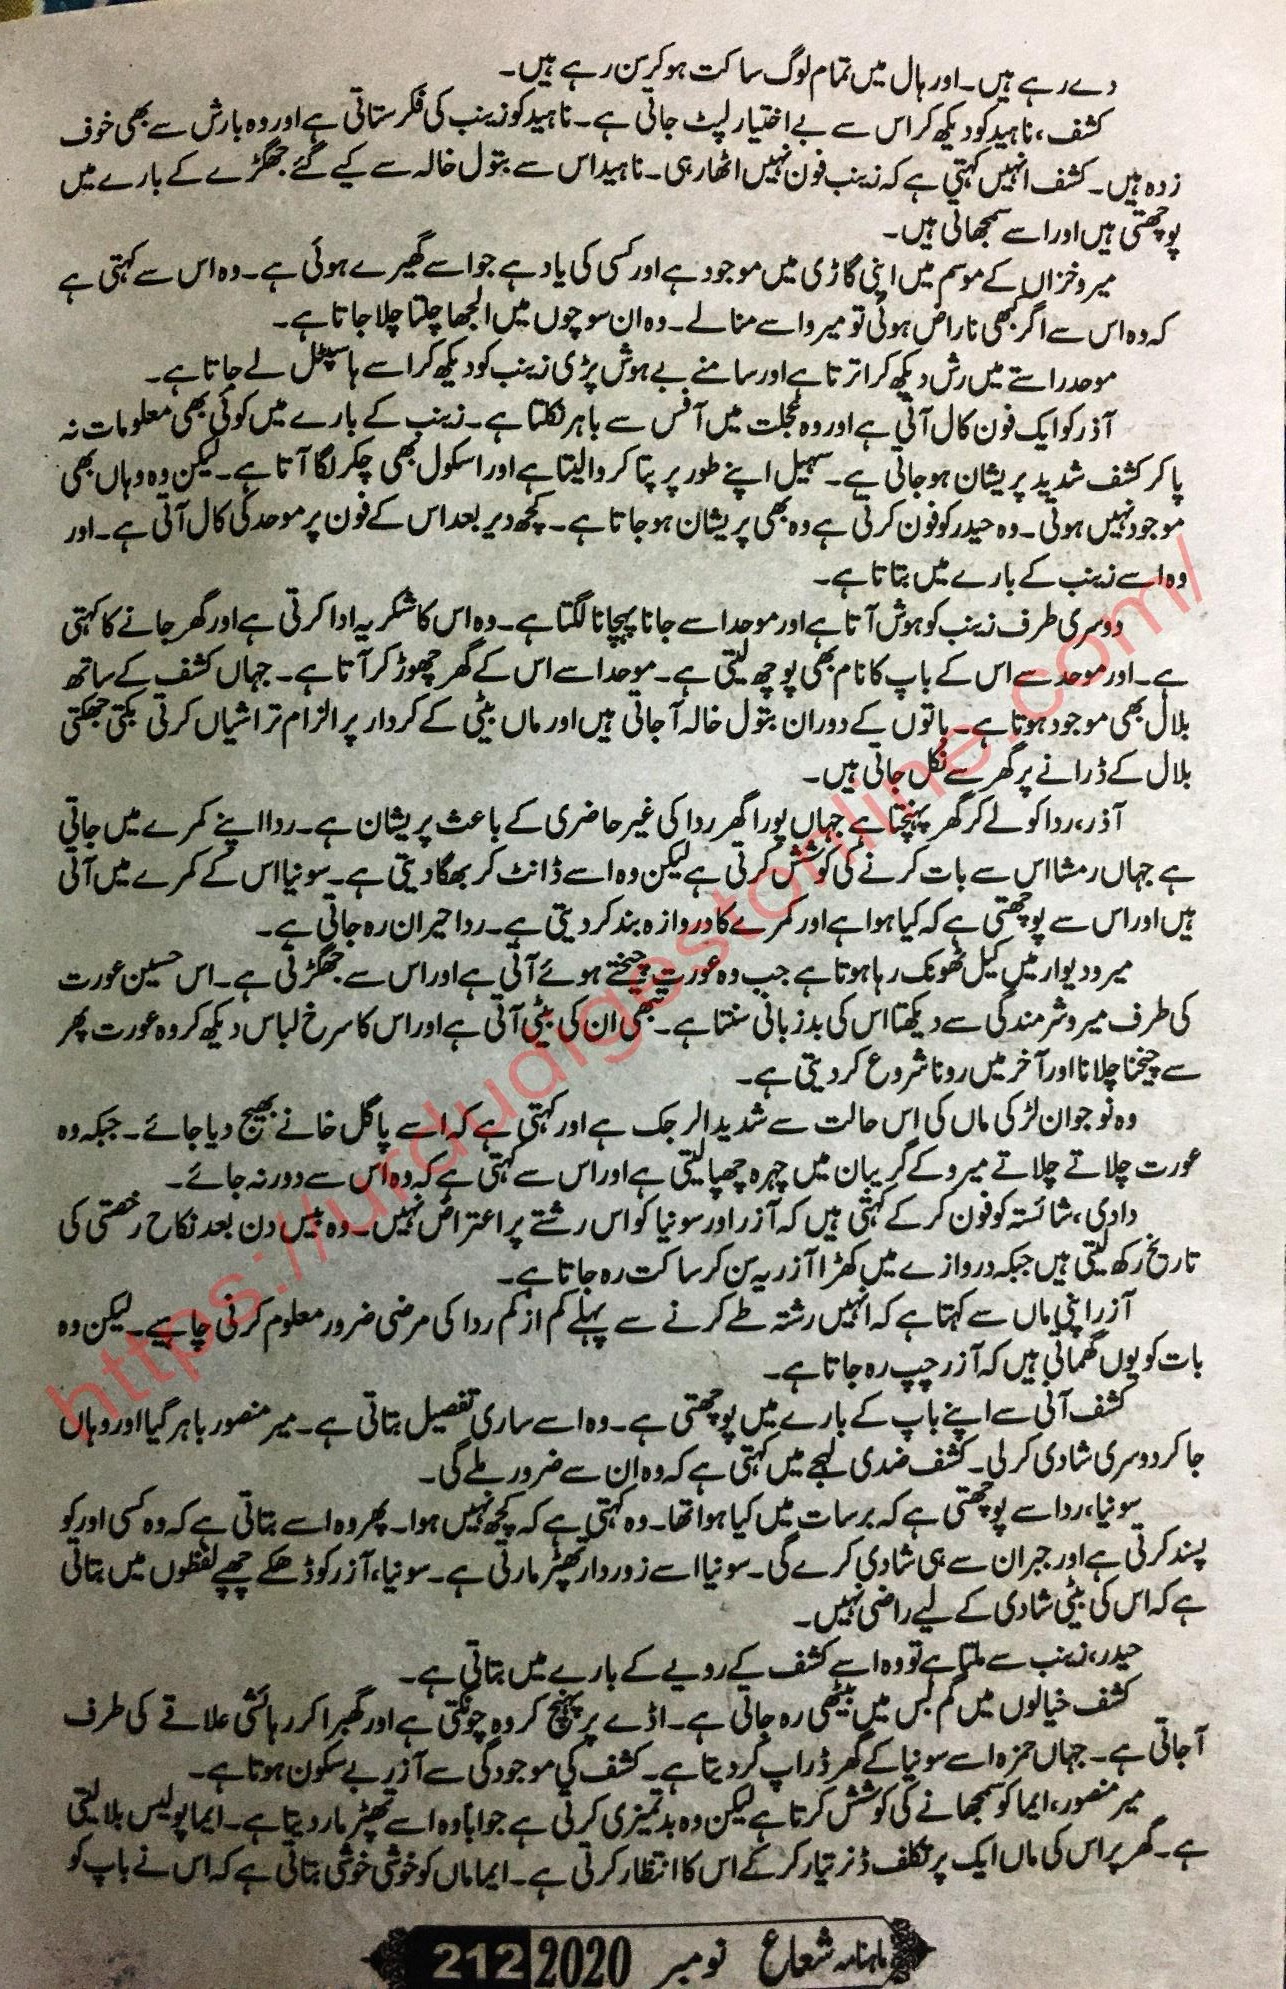 دے رہے ہیں۔ اور ہال میں تمام لوگ ساکت ہو کر سن رہے ہیں۔
کشف، ناہید کو دیکھ کر اس سے بے اختیار لپٹ جاتی ہے۔ ناہید کو زینب کی فکر ستاتی ہے اور وہ بارش سے بھی خوف
زدہ ہیں۔ کشف انہیں کہتی ہے کہ زینب فون نہیں اٹھا رہی۔ ناہید اس سے بتول خالہ سے کیے گئے جھگڑے کے بارے میں
پوچھتی ہیں اور اسے سمجھاتی ہیں۔
میرو خزاں کے موسم میں اپنی گاڑی میں موجود ہے اور کسی کی یاد ہے جو اسے گھیرے ہوئی ہے۔ وہ اس سے کہتی ہے
کہ وہ اس سے اگر کبھی ناراض ہوئی تو میرو اسے منا لے۔ وہ ان سوچوں میں الجھا چلتا چلا جاتا ہے۔
موحد راستے میں رش دیکھ کر اترتا ہے اور سامنے بے ہوش پڑی زینب کو دیکھ کر اسے ہاسپٹل لے جاتا ہے۔
آذر کو ایک فون کال آتی ہے اور وہ عجلت میں آفس سے باہر نکلتا ہے۔ زینب کے بارے میں کوئی بھی معلومات نہ
پا کر کشف شدید پریشان ہو جاتی ہے۔ سہیل اپنے طور پر پتا کروا لیتا ہے اور اسکول بھی چکر لگا آتا ہے۔ لیکن وہ وہاں بھی
موجود نہیں ہوتی۔ وہ حیدر کو فون کرتی ہے وہ بھی پریشان ہو جاتا ہے۔ کچھ دیر بعد اس کے فون پر موحد کی کال آتی ہے۔ اور
وہ اسے زینب کے بارے میں بتاتا ہے۔
دوسری طرف زینب کو ہوش آتا ہے اور موحد اسے جانا پہچانا لگتا ہے۔ وہ اس کا شکریہ ادا کرتی ہے اور گھر جانے کا کہتی
ہے۔ اور موحد سے اس کے باپ کا نام بھی پوچھ لیتی ہے۔ موحد اسے اس کے گھر چھوڑ کر آتا ہے۔ جہاں کشف کے ساتھ
بلال بھی موجود ہوتا ہے۔ باتوں کے دوران بتول خالہ آ جاتی ہیں اور ماں بیٹی کے کردار پر الزام تراشیاں کرتی بکتی جھکتی
بلال کے ڈرانے پر گھر سے نکل جاتی ہیں۔
آذر، ردا کو لے کر گھر پہنچتا ہے جہاں پورا گھر ردا کی غیر حاضری کے باعث پریشان ہے۔ ردا اپنے کمرے میں جاتی
ہے جہاں رمشا اس سے بات کرنے کی کوشش کرتی ہے لیکن وہ اسے ڈانٹ کر بھگا دیتی ہے۔ سونیا اس کے کمرے میں آتی
ہیں اور اس سے پوچھتی ہے کہ کیا ہوا ہے اور کمرے کا دروازہ بند کر دیتی ہے۔ ردا حیران رہ جاتی ہے۔
میرو دیوار میں کیل ٹھونک رہا ہوتا ہے جب وہ عورت چیختے ہوئے آتی ہے اور اس سے جھگڑتی ہے۔ اس حسین عورت
کی طرف میرو شرمندگی سے دیکھتا اس کی بدزبانی سنتا ہے۔ تبھی ان کی بیٹی آتی ہے اور اس کا سرخ لباس دیکھ کر وہ عورت پھر
سے چیخنا چلانا اور آخر میں رونا شروع کر دیتی ہے۔
وہ نوجوان لڑکی ماں کی اس حالت سے شدید الرجک ہے اور کہتی ہے کہ اسے پاگل خانے بھیج دیا جائے۔ جبکہ وہ
عورت چلاتے چلاتے میرو کے گریبان میں چہرہ چھپا لیتی ہے اور اس سے کہتی ہے کہ وہ اس سے دور نہ جائے۔
دادی، شائستہ کو فون کر کے کہتی ہیں کہ آزر اور سونیا کو اس رشتے پر اعتراض نہیں۔ وہ بیس دن بعد نکاح رخصتی کی
تاریخ رکھ لیتی ہیں جبکہ دروازے میں کھڑا آزر یہ سن کر ساکت رہ جاتا ہے۔
آزر اپنی ماں سے کہتا ہے کہ انہیں رشتہ طے کرنے سے پہلے کم از کم ردا کی مرضی ضرور معلوم کرنی چاہیے۔ لیکن وہ
بات کو یوں گھماتی ہیں کہ آزر چپ رہ جاتا ہے۔
کشف آنی سے اپنے باپ کے بارے میں پوچھتی ہے۔ وہ اسے ساری تفصیل بتاتی ہے۔ میر منصور باہر گیا اور وہاں
جا کر دوسری شادی کر لی۔ کشف ضدی لہجے میں کہتی ہے کہ وہ ان سے ضرور ملے گی۔
سونیا، ردا سے پوچھتی ہے کہ برسات میں کیا ہوا تھا۔ وہ کہتی ہے کہ کچھ نہیں ہوا۔ پھر وہ اسے بتاتی ہے کہ وہ کسی اور کو
پسند کرتی ہے اور جبران سے ہی شادی کرے گی۔ سونیا اسے زوردار تھپڑ مارتی ہے۔ سونیا، آزر کو ڈھکے چھپے لفظوں میں بتاتی
ہے کہ اس کی بیٹی شادی کے لیے راضی نہیں۔
حیدر، زینب سے ملتا ہے تو وہ اسے کشف کے رویے کے بارے میں بتاتی ہے۔
کشف خیالوں میں گم بس میں بیٹھی رہ جاتی ہے۔ اڈے پر پہنچ کر وہ چونکتی ہے اور گھبرا کر رہائشی علاقے کی طرف
آ جاتی ہے۔ جہاں حمزہ اسے سونیا کے گھر ڈراپ کر دیتا ہے۔ کشف کی موجودگی سے آزر بے سکون ہوتا ہے۔
میر منصور، ایما کو سمجھانے کی کوشش کرتا ہے لیکن وہ بدتمیزی کرتی ہے جواباً وہ اسے تھپڑ مار دیتا ہے۔ ایما پولیس بلا لیتی
ہے۔ گھر پر اس کی ماں ایک پرتکلف ڈنر تیار کر کے اس کا انتظار کرتی ہے۔ ایما ماں کو خوشی خوشی بتاتی ہے کہ اس نے باپ کو
ماہنامہ شعاع نومبر 2020 212
https://urdudigestonline.com/